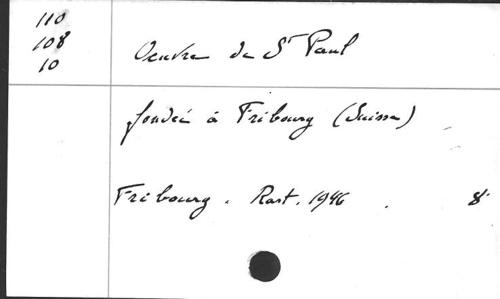 110
108
10
Oeuvre de St Paul
fondée à Fribourg (Suisse)
Fribourg. Rast. 1946. 8°